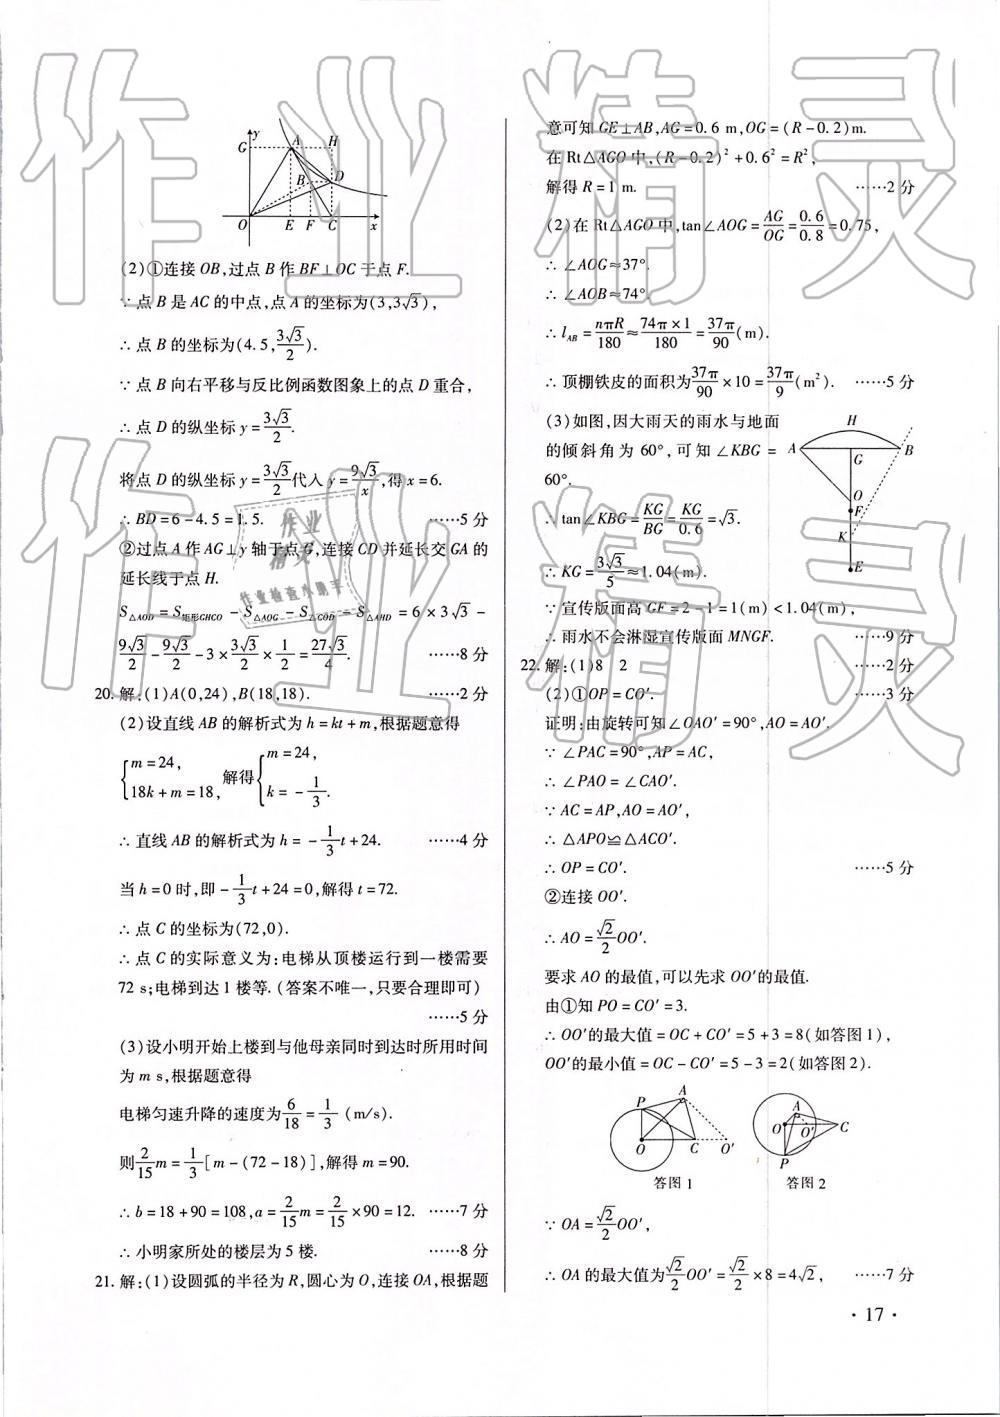 (2)①连接OB,过点B作BF⊥OC于点F.
∵点B是AC的中点,点A的坐标为(3,3√3),
∴点B的坐标为(4.5,3√3/2).
∵点B向右平移与反比例函数图象上的点D重合,
∴点D的纵坐标y=3√3/2.
将点D的纵坐标y=3√3/2代入y=9√3/x,得x=6.
∴BD=6-4.5=1.5. ……5分
②过点A作AG⊥y轴于点G,连接CD并延长交GA的
延长线于点H.
S△AOD=S矩形GHCO-S△AOG-S△COD-S△AHD=6×3√3-
9√3/2-9√3/2-3×3√3/2×1/2=27√3/4. ……8分
20.解:(1)A(0,24),B(18,18). ……2分
(2)设直线AB的解析式为h=kt+m,根据题意得
{m=24, 18k+m=18, 解得{m=24, k=-1/3.
∴直线AB的解析式为h=-1/3t+24. ……4分
当h=0时,即-1/3t+24=0,解得t=72.
∴点C的坐标为(72,0).
∴点C的实际意义为:电梯从顶楼运行到一楼需要
72 s;电梯到达1楼等.(答案不唯一,只要合理即可)
……5分
(3)设小明开始上楼到与他母亲同时到达时所用时间
为m s,根据题意得
电梯匀速升降的速度为6/18=1/3(m/s).
则2/15m=1/3[m-(72-18)],解得m=90.
∴b=18+90=108,a=2/15m=2/15×90=12. ……7分
∴小明家所处的楼层为5楼. ……8分
21.解:(1)设圆弧的半径为R,圆心为O,连接OA,根据题
意可知GE⊥AB,AG=0.6 m,OG=(R-0.2)m.
在Rt△AGO中,(R-0.2)²+0.6²=R²,
解得R=1 m. ……2分
(2)在Rt△AGO中,tan∠AOG=AG/OG=0.6/0.8=0.75,
∴∠AOG≈37°.
∴∠AOB≈74°.
∴l_AB=nπR/180≈74π×1/180=37π/90(m).
∴顶棚铁皮的面积为37π/90×10=37π/9(m²). ……5分
(3)如图,因大雨天的雨水与地面
的倾斜角为60°,可知∠KBG=
60°.
∴tan∠KBG=KG/BG=KG/0.6=√3.
∴KG=3√3/5≈1.04(m).
∵宣传版面高GF=2-1=1(m)<1.04(m),
∴雨水不会淋湿宣传版面MNGF. ……9分
22.解:(1)8 2 ……2分
(2)①OP=CO′. ……3分
证明:由旋转可知∠OAO′=90°,AO=AO′.
∵∠PAC=90°,AP=AC,
∴∠PAO=∠CAO′.
∵AC=AP,AO=AO′,
∴△APO≌△ACO′.
∴OP=CO′. ……5分
②连接OO′.
∴AO=√2/2OO′.
要求AO的最值,可以先求OO′的最值.
由①知PO=CO′=3.
∴OO′的最大值=OC+CO′=5+3=8(如答图1),
OO′的最小值=OC-CO′=5-3=2(如答图2).
答图1 答图2
∵OA=√2/2OO′,
∴OA的最大值为√2/2OO′=√2/2×8=4√2, ……7分
·17·
作业精灵
作业精灵
作业
精灵
作业检查小助手
y G A H D B O E F C x
H A G B O F K E
P A O C O′
A O O′ C P